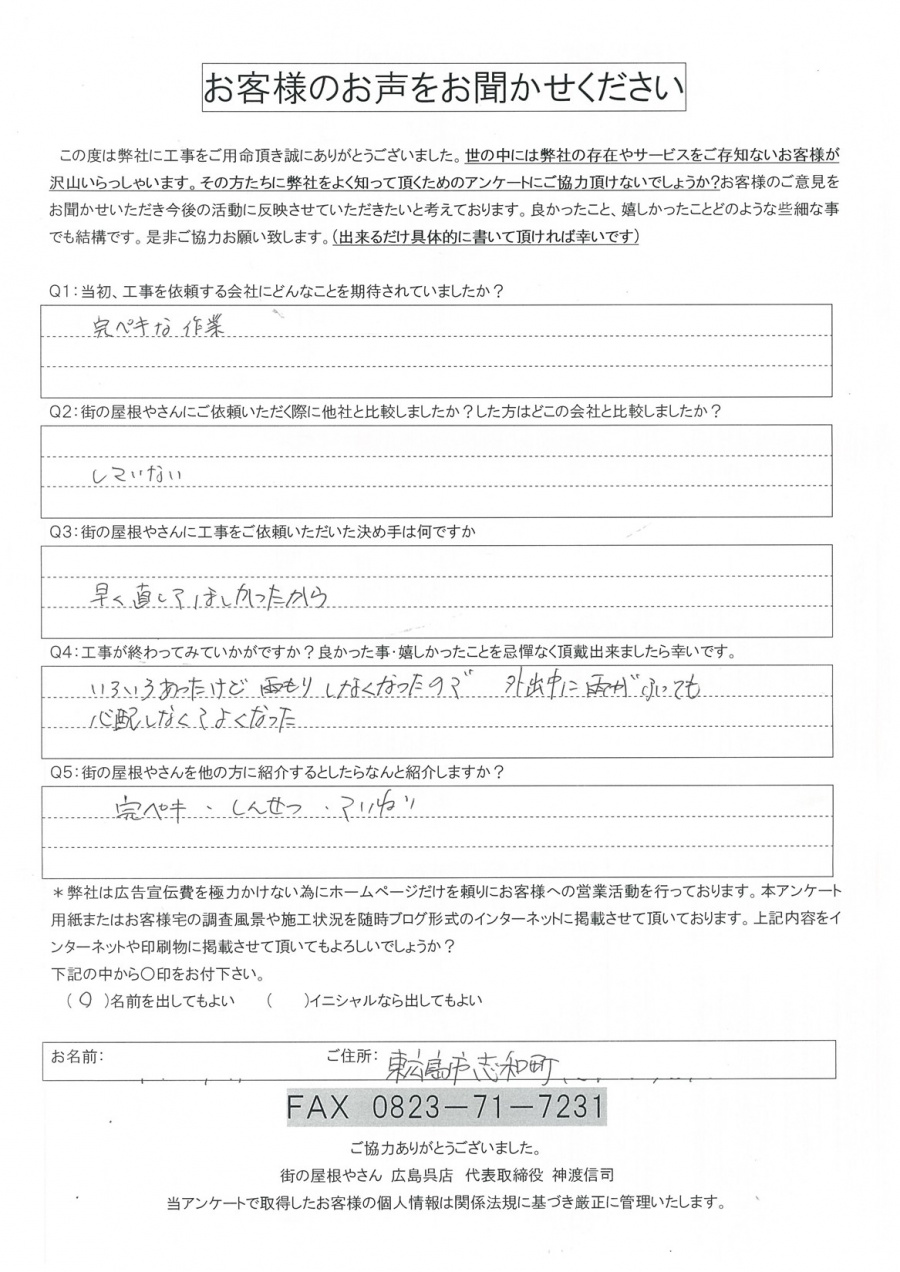 お客様のお声をお聞かせください
この度は弊社に工事をご用命頂き誠にありがとうございました。世の中には弊社の存在やサービスをご存知ないお客様が
沢山いらっしゃいます。その方たちに弊社をよく知って頂くためのアンケートにご協力頂けないでしょうか?お客様のご意見を
お聞かせいただき今後の活動に反映させていただきたいと考えております。良かったこと、嬉しかったことどのような些細な事
でも結構です。是非ご協力お願い致します。(出来るだけ具体的に書いて頂ければ幸いです)
Q1:当初、工事を依頼する会社にどんなことを期待されていましたか?
完ペキな作業
Q2:街の屋根やさんにご依頼いただく際に他社と比較しましたか?した方はどこの会社と比較しましたか?
していない
Q3:街の屋根やさんに工事をご依頼いただいた決め手は何ですか
早く直してほしかったから
Q4:工事が終わってみていかがですか?良かった事・嬉しかったことを忌憚なく頂戴出来ましたら幸いです。
いろいろあったけど 雨もり しなくなったので 外出中に雨がふっても
心配しなくてよくなった
Q5:街の屋根やさんを他の方に紹介するとしたらなんと紹介しますか?
完ペキ ・ しんせつ ・ ていねい
*弊社は広告宣伝費を極力かけない為にホームページだけを頼りにお客様への営業活動を行っております。本アンケート
用紙またはお客様宅の調査風景や施工状況を随時ブログ形式のインターネットに掲載させて頂いております。上記内容をイ
ンターネットや印刷物に掲載させて頂いてもよろしいでしょうか?
下記の中から〇印をお付下さい。
(〇)名前を出してもよい ( )イニシャルなら出してもよい
お名前: ご住所: 東広島市志和町
FAX 0823-71-7231
ご協力ありがとうございました。
街の屋根やさん 広島呉店 代表取締役 神渡信司
当アンケートで取得したお客様の個人情報は関係法規に基づき厳正に管理いたします。